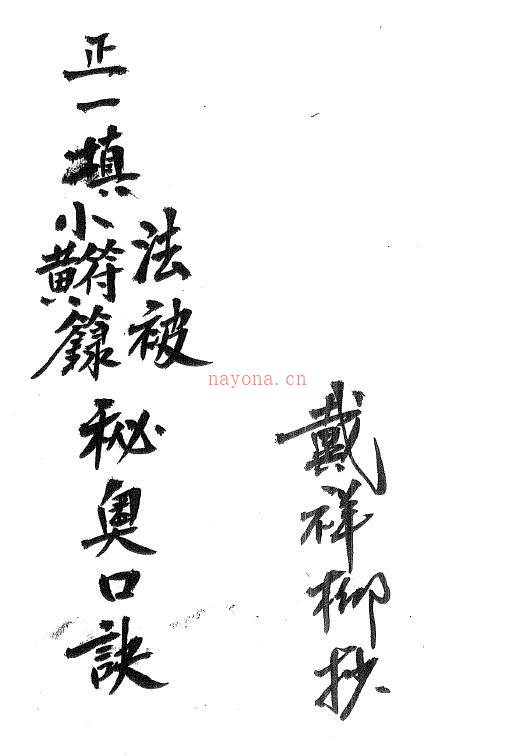 戴祥柳抄
正一填
法被
小符籙
黄
秘奥口訣
nayona.cn